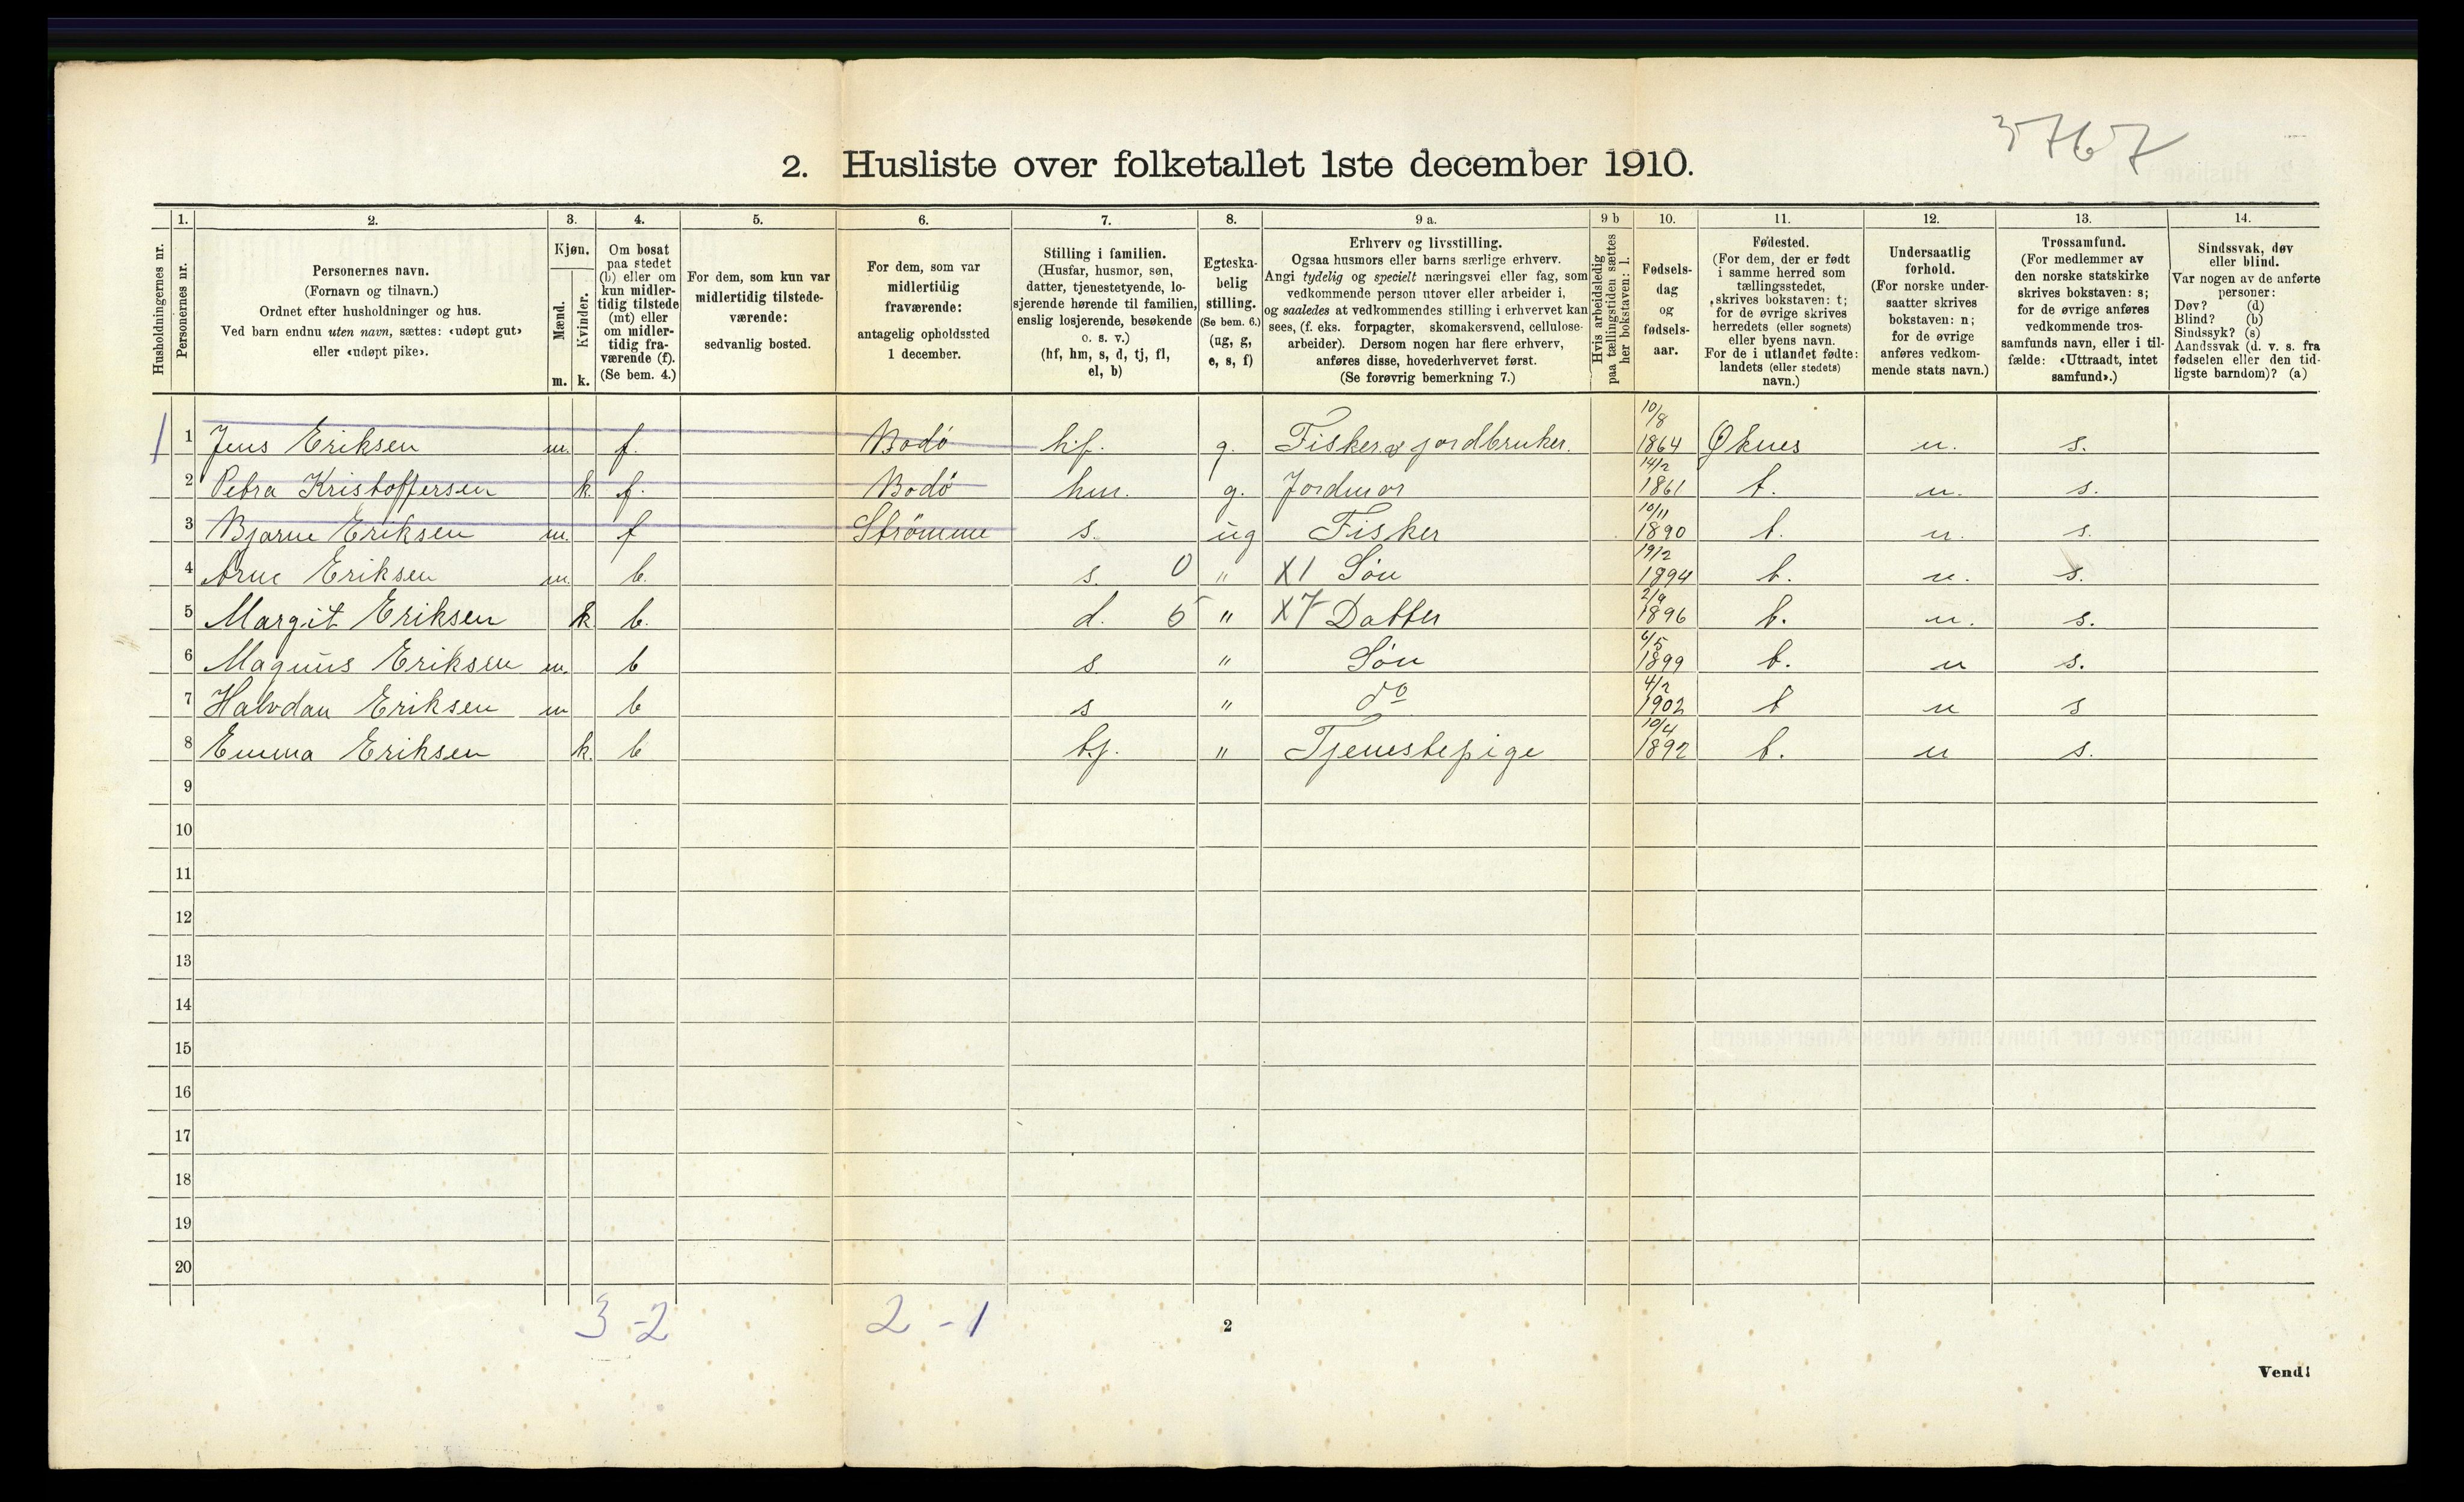 3767
2. Husliste over folketallet 1ste december 1910.
1. 2. 3. 4. 5. 6. 7. 8. 9 a. 9 b 10. 11. 12. 13. 14.
Husholdningernes nr.
Personernes nr.
Personernes navn.
(Fornavn og tilnavn.)
Ordnet efter husholdninger og hus.
Ved barn endnu uten navn, sættes: «udøpt gut»
eller «udøpt pike».
Kjøn.
Mænd.
Kvinder.
m. k.
Om bosat
paa stedet
(b) eller om
kun midler-
tidig tilstede
(mt) eller
om midler-
tidig fra-
værende (f).
(Se bem. 4.)
For dem, som kun var
midlertidig tilstede-
værende:
sedvanlig bosted.
For dem, som var
midlertidig
fraværende:
antagelig opholdssted
1 december.
Stilling i familien.
(Husfar, husmor, søn,
datter, tjenestetyende, lo-
sjerende hørende til familien,
enslig losjerende, besøkende
o. s. v.)
(hf, hm, s, d, tj, fl,
el, b)
Egteska-
belig
stilling.
(Se bem. 6.)
(ug, g,
e, s, f)
Erhverv og livsstilling.
Ogsaa husmors eller barns særlige erhverv.
Angi tydelig og specielt næringsvei eller fag, som
vedkommende person utøver eller arbeider i,
og saaledes at vedkommendes stilling i erhvervet kan
sees, (f. eks. forpagter, skomakersvend, cellulose-
arbeider). Dersom nogen har flere erhverv,
anføres disse, hovederhvervet først.
(Se forøvrig bemerkning 7.)
Hvis arbeidsledig
paa tællingstiden sættes
her bokstaven: l.
Fødsels-
dag
og
fødsels-
aar.
Fødested.
(For dem, der er født
i samme herred som
tællingsstedet,
skrives bokstaven: t;
for de øvrige skrives
herredets (eller sognets)
eller byens navn.
For de i utlandet fødte:
landets (eller stedets)
navn.)
Undersaatlig
forhold.
(For norske under-
saatter skrives
bokstaven: n;
for de øvrige
anføres vedkom-
mende stats navn.)
Trossamfund.
(For medlemmer av
den norske statskirke
skrives bokstaven: s;
for de øvrige anføres
vedkommende tros-
samfunds navn, eller i til-
fælde: «Uttraadt, intet
samfund».)
Sindssvak, døv
eller blind.
Var nogen av de anførte
personer:
Døv? (d)
Blind? (b)
Sindssyk? (s)
Aandssvak (d. v. s. fra
fødselen eller den tid-
ligste barndom)? (a)
1 1 Jens Eriksen m. f. Bodö hf. g. Fisker & jordbruker. 10/8 1864 Øknes n. s.
2 Petra Kristoffersen k. f. Bodö hm. g. Jordmor 14/2 1861 t. n. s.
3 Bjarne Eriksen m. f Strömme s. ug Fisker 10/11 1890 t. n. s.
4 Arne Eriksen m. b. s. 0 " X1 Sön 19/2 1894 t. n. s.
5 Margit Eriksen k. b. d. 5 " X7 Datter 2/9 1896 t. n. s.
6 Magnus Eriksen m. b s " Sön 6/5 1899 t. n s.
7 Halvdan Eriksen m b s " do 4/2 1902 t n s
8 Emma Eriksen k. b tj. " Tjenestepige 10/4 1892 t. n s.
9
10
11
12
13
14
15
16
17
18
19
20
3-2 2-1
2
Vend!